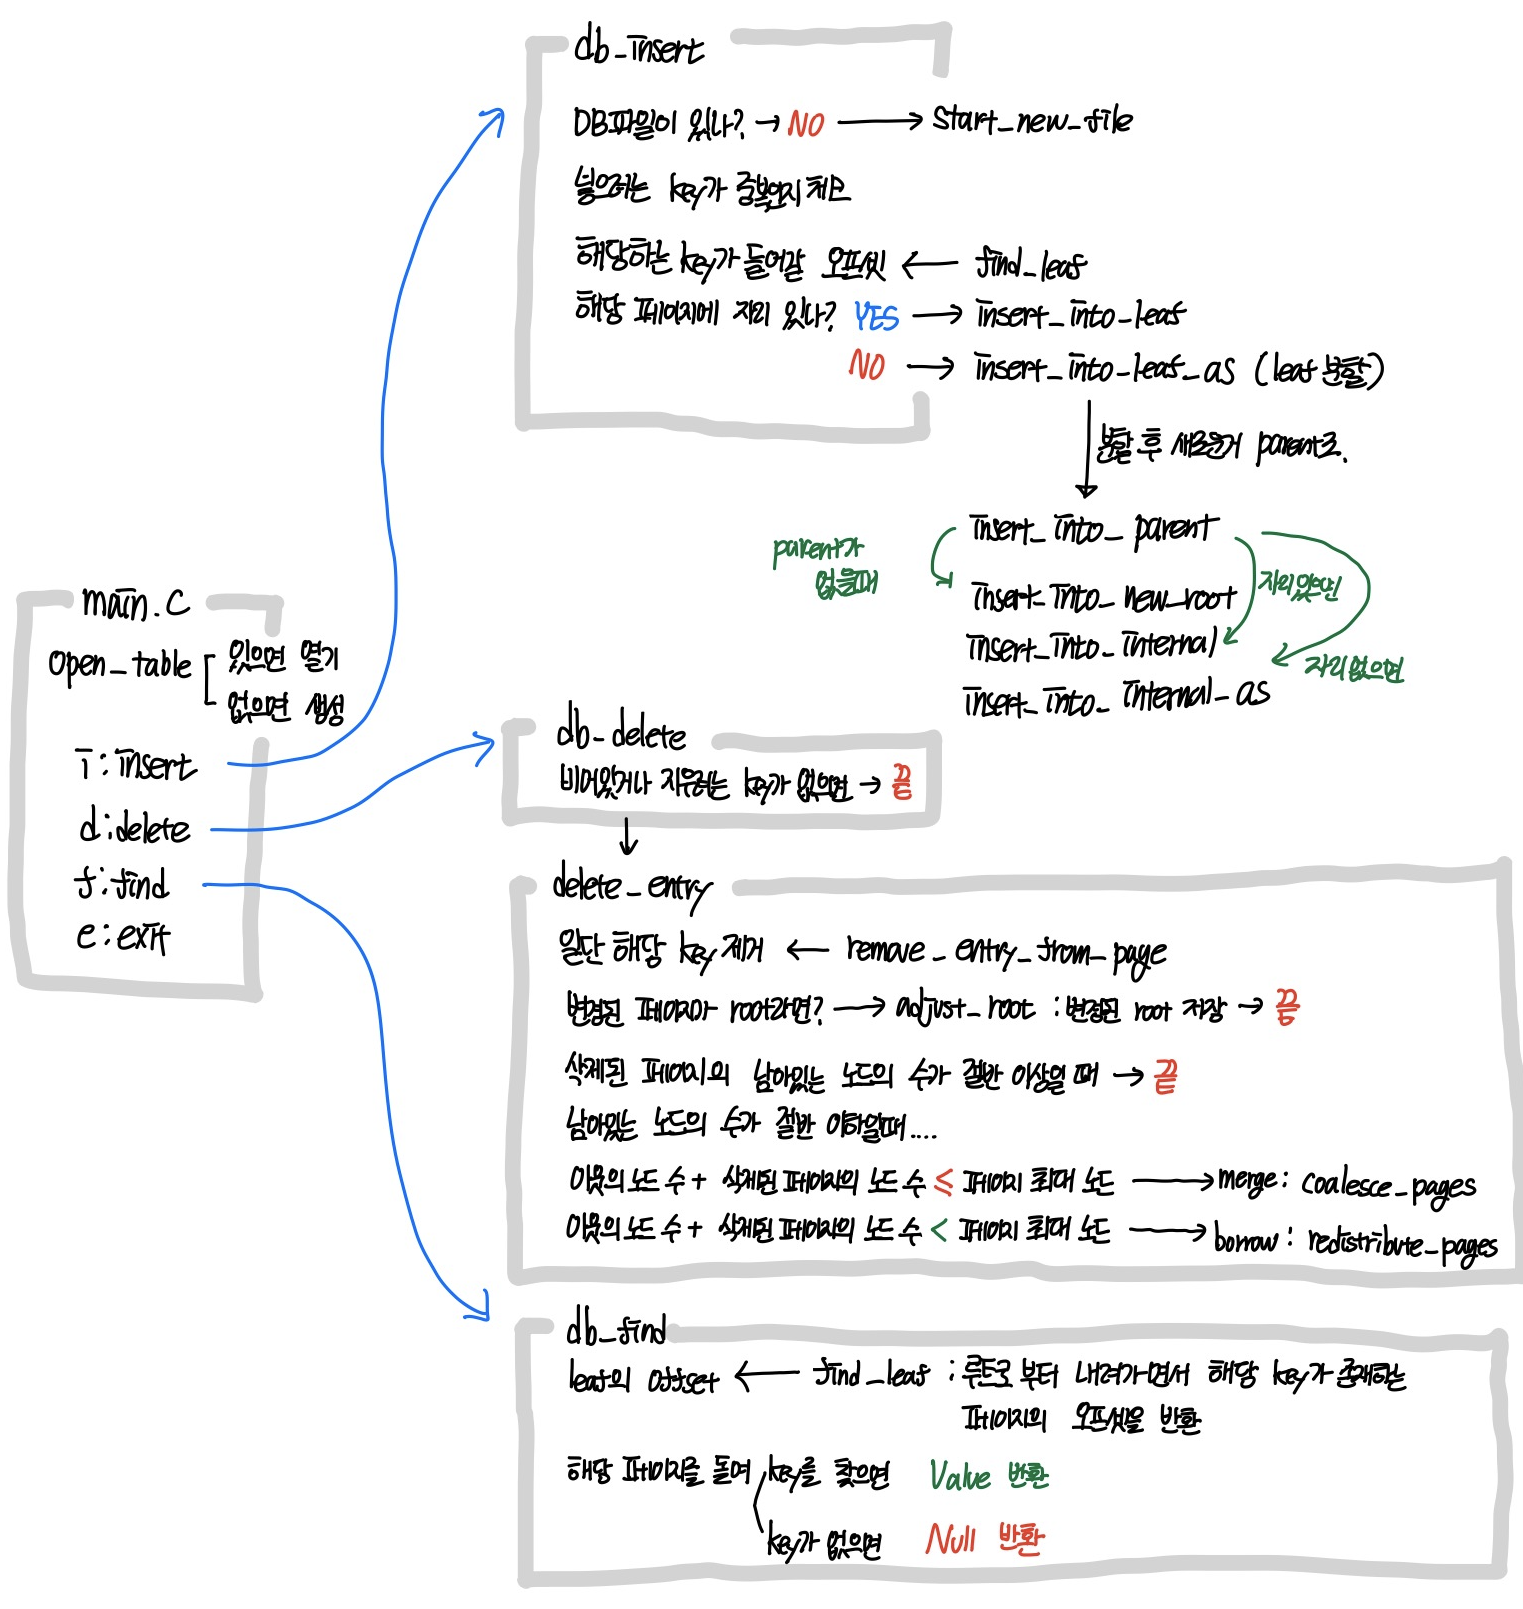 main.c
open_table
있으면 열기
없으면 생성
i : insert
d : delete
f : find
e : exit
db_insert
DB파일이 있나? → NO → start_new_file
넣으려는 key가 중복인지 체크
해당하는 key가 들어갈 오프셋 ← find_leaf
해당 페이지에 자리 있나? YES → insert_into_leaf
NO → insert_into_leaf_as (leaf 분할)
분할 후 새로운거 parent로.
insert_into_parent
parent가
없을때
insert_into_new_root
자리있으면
insert_into_internal
자리없으면
insert_into_internal_as
db_delete
비어있거나 지우려는 key가 없으면 → 끝
delete_entry
일단 해당 key 제거 ← remove_entry_from_page
변경된 페이지가 root라면? → adjust_root : 변경된 root 저장 → 끝
삭제된 페이지의 남아있는 노드의 수가 절반 이상일 때 → 끝
남아있는 노드의 수가 절반 이하일때....
이웃의 노드 수 + 삭제된 페이지의 노드 수 ≤ 페이지 최대 노드 → merge : coalesce_pages
이웃의 노드 수 + 삭제된 페이지의 노드 수 < 페이지 최대 노드 → borrow : redistribute_pages
db_find
leaf의 offset ← find_leaf : 루트로 부터 내려가면서 해당 key가 존재하는
페이지의 오프셋을 반환
해당 페이지를 돌며 key를 찾으면 Value 반환
key가 없으면 Null 반환